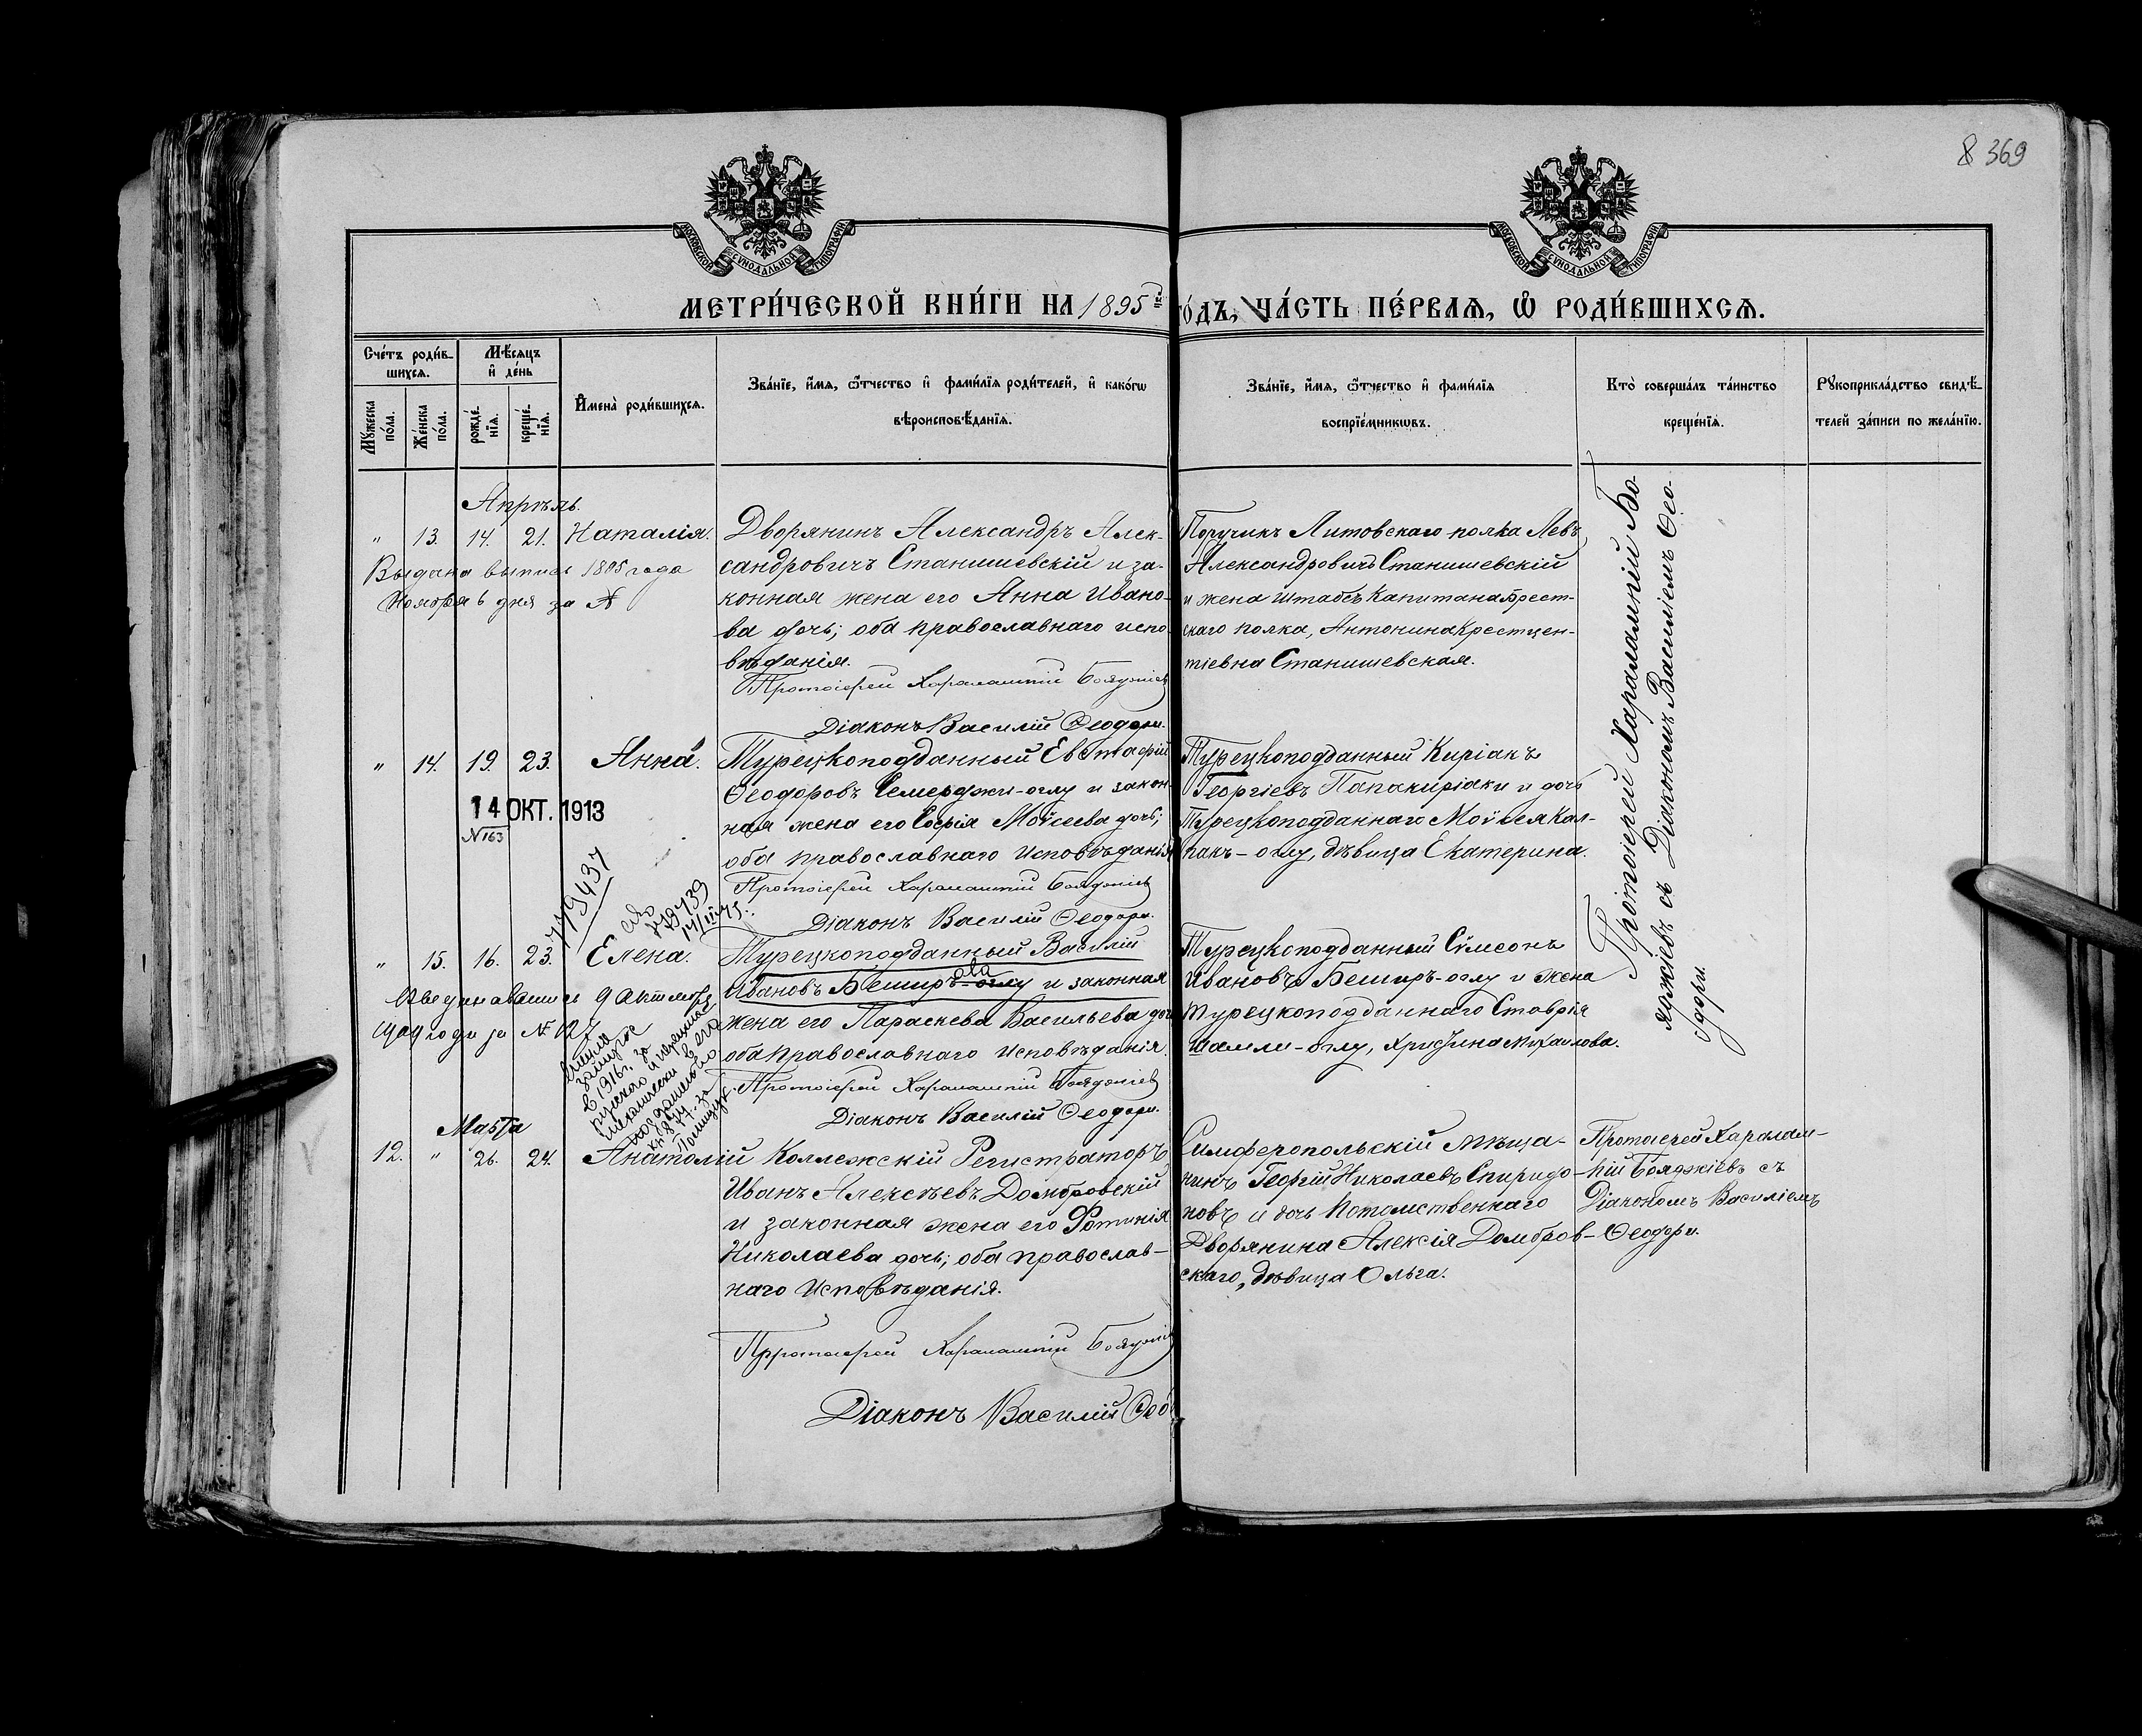 8 369
МОСКОВСКОЙ СѴНОДАЛЬНОЙ ТИПОГРАФІИ
МОСКОВСКОЙ СѴНОДАЛЬНОЙ ТИПОГРАФІИ
МЕТРИ́ЧЕСКОЙ КНИ́ГИ НА 1895 го́дъ, ЧА́СТЬ ПЕ́РВАѦ, Ѽ РОДИ́ВШИХСѦ.
Сче́тъ роди́в-
шихсѧ.
Мѣ́сѧцъ
и҆ де́нь
Мꙋ́жеска по́ла.
Же́нска по́ла.
рожде́нїѧ.
креще́нїѧ.
И҆мена̀ роди́вшихсѧ.
Зва́нїе, и҆́мѧ, ѻ҆́тчество и҆ фами́лїѧ роди́телей, и҆ како́гѡ
вѣроисповѣ́данїѧ.
Зва́нїе, и҆́мѧ, ѻ҆́тчество и҆ фами́лїѧ
воспрїе́мникѡвъ.
Кто̀ соверша́лъ та́инство
креще́нїѧ.
Рꙋкоприкла́дство свидѣ́-
телей за́писи по жела́нїю.
Апрѣль.
" 13. 14. 21. Наталія.
Выдана выпись 1895 года
Ноября 6 дня за №
Дворянинъ Александръ Алек-
сандровичъ Станишевскій и за-
конная жена его Анна Ивано-
ва дочь; оба православнаго испо-
вѣданія.
Протоіерей Харалампій Бояджіевъ
Діаконъ Василій Ѳеодори.
Поручикъ Литовскаго полка Левъ
Александровичъ Станишевскій
и жена Штабсъ Капитана Брест-
скаго полка, Антонина Крестцен-
тіевна Станишевская.
Протоіерей Харалампій Бо-
яджіевъ съ Діакономъ Василіемъ Ѳео-
дори.
" 14. 19. 23. Анна.
14 ОКТ. 1913
N 163
Турецкоподданный Евстафій
Ѳеодоровъ Семерджи-оглу и закон-
ная жена его Софія Моѵсеева дочь;
оба православнаго исповѣданія
Протоіерей Харалампій Бояджіевъ
Діаконъ Василій Ѳеодори.
Турецкоподданный Киріакъ
Георгіевъ Папакиріаки и дочь
Турецкоподданнаго Моѵсея Кал-
пакъ-оглу, дѣвица Екатерина.
779437
779739
" 15. 16. 23. Елена.
Турецкоподданный Василій
Ивановъ Беширъ-оглу и законная
жена его Параскева Васильева доч
оба православнаго исповѣданія.
Протоіерей Харалампій Бояджіевъ
Діаконъ Василій Ѳеодори.
Турецкоподданный Сѵмеонъ
Ивановъ Беширъ-оглу и жена
турецкоподданнаго Ставрія
Шамли-оглу, Христина Михаилова.
9 Октября
года за № 127
в 1916 г. за
Марта
12. " 26. 24. Анатолій
Коллежскій Регистраторъ
Иванъ Алексѣевъ Домбровскій
и законная жена его Фотинія
Николаева дочь; оба православ-
наго исповѣданія.
Протоіерей Харалампій Бояджіевъ
Діаконъ Василій Ѳео
Симферопольскій мѣща-
нинъ Георгій Николаевъ Спиридо-
новъ и дочь потомственнаго
Дворянина Алексія Домбров-
скаго, дѣвица Ольга.
Протоіерей Харалам-
пій Бояджіевъ съ
Діакономъ Василіемъ
Ѳеодори.